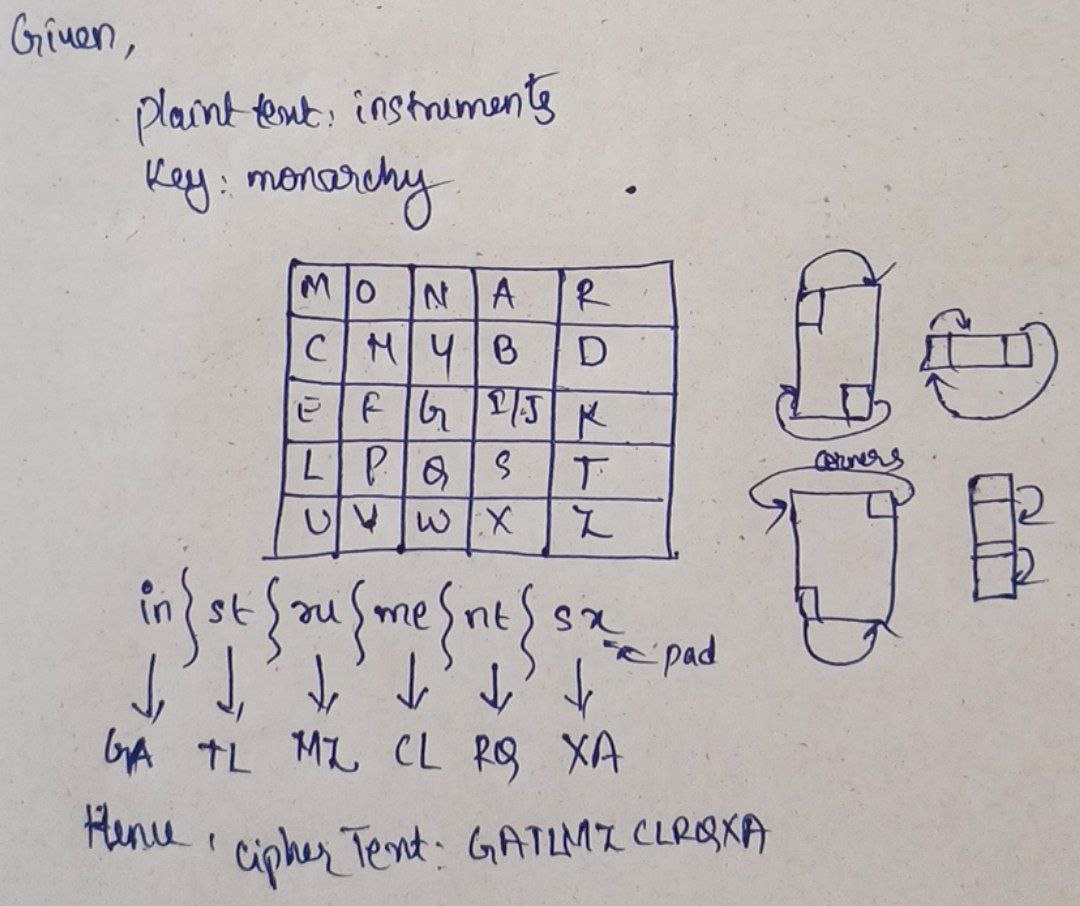 Given,
plaint text: instruments
Key: monarchy
M O N A R
C H Y B D
E F G I/J K
L P Q S T
U V W X Z
corners
in } st { ru { me { nt { sx
x pad
GA TL MZ CL RQ XA
Hence, cipher Text: GATLMZCLRQXA